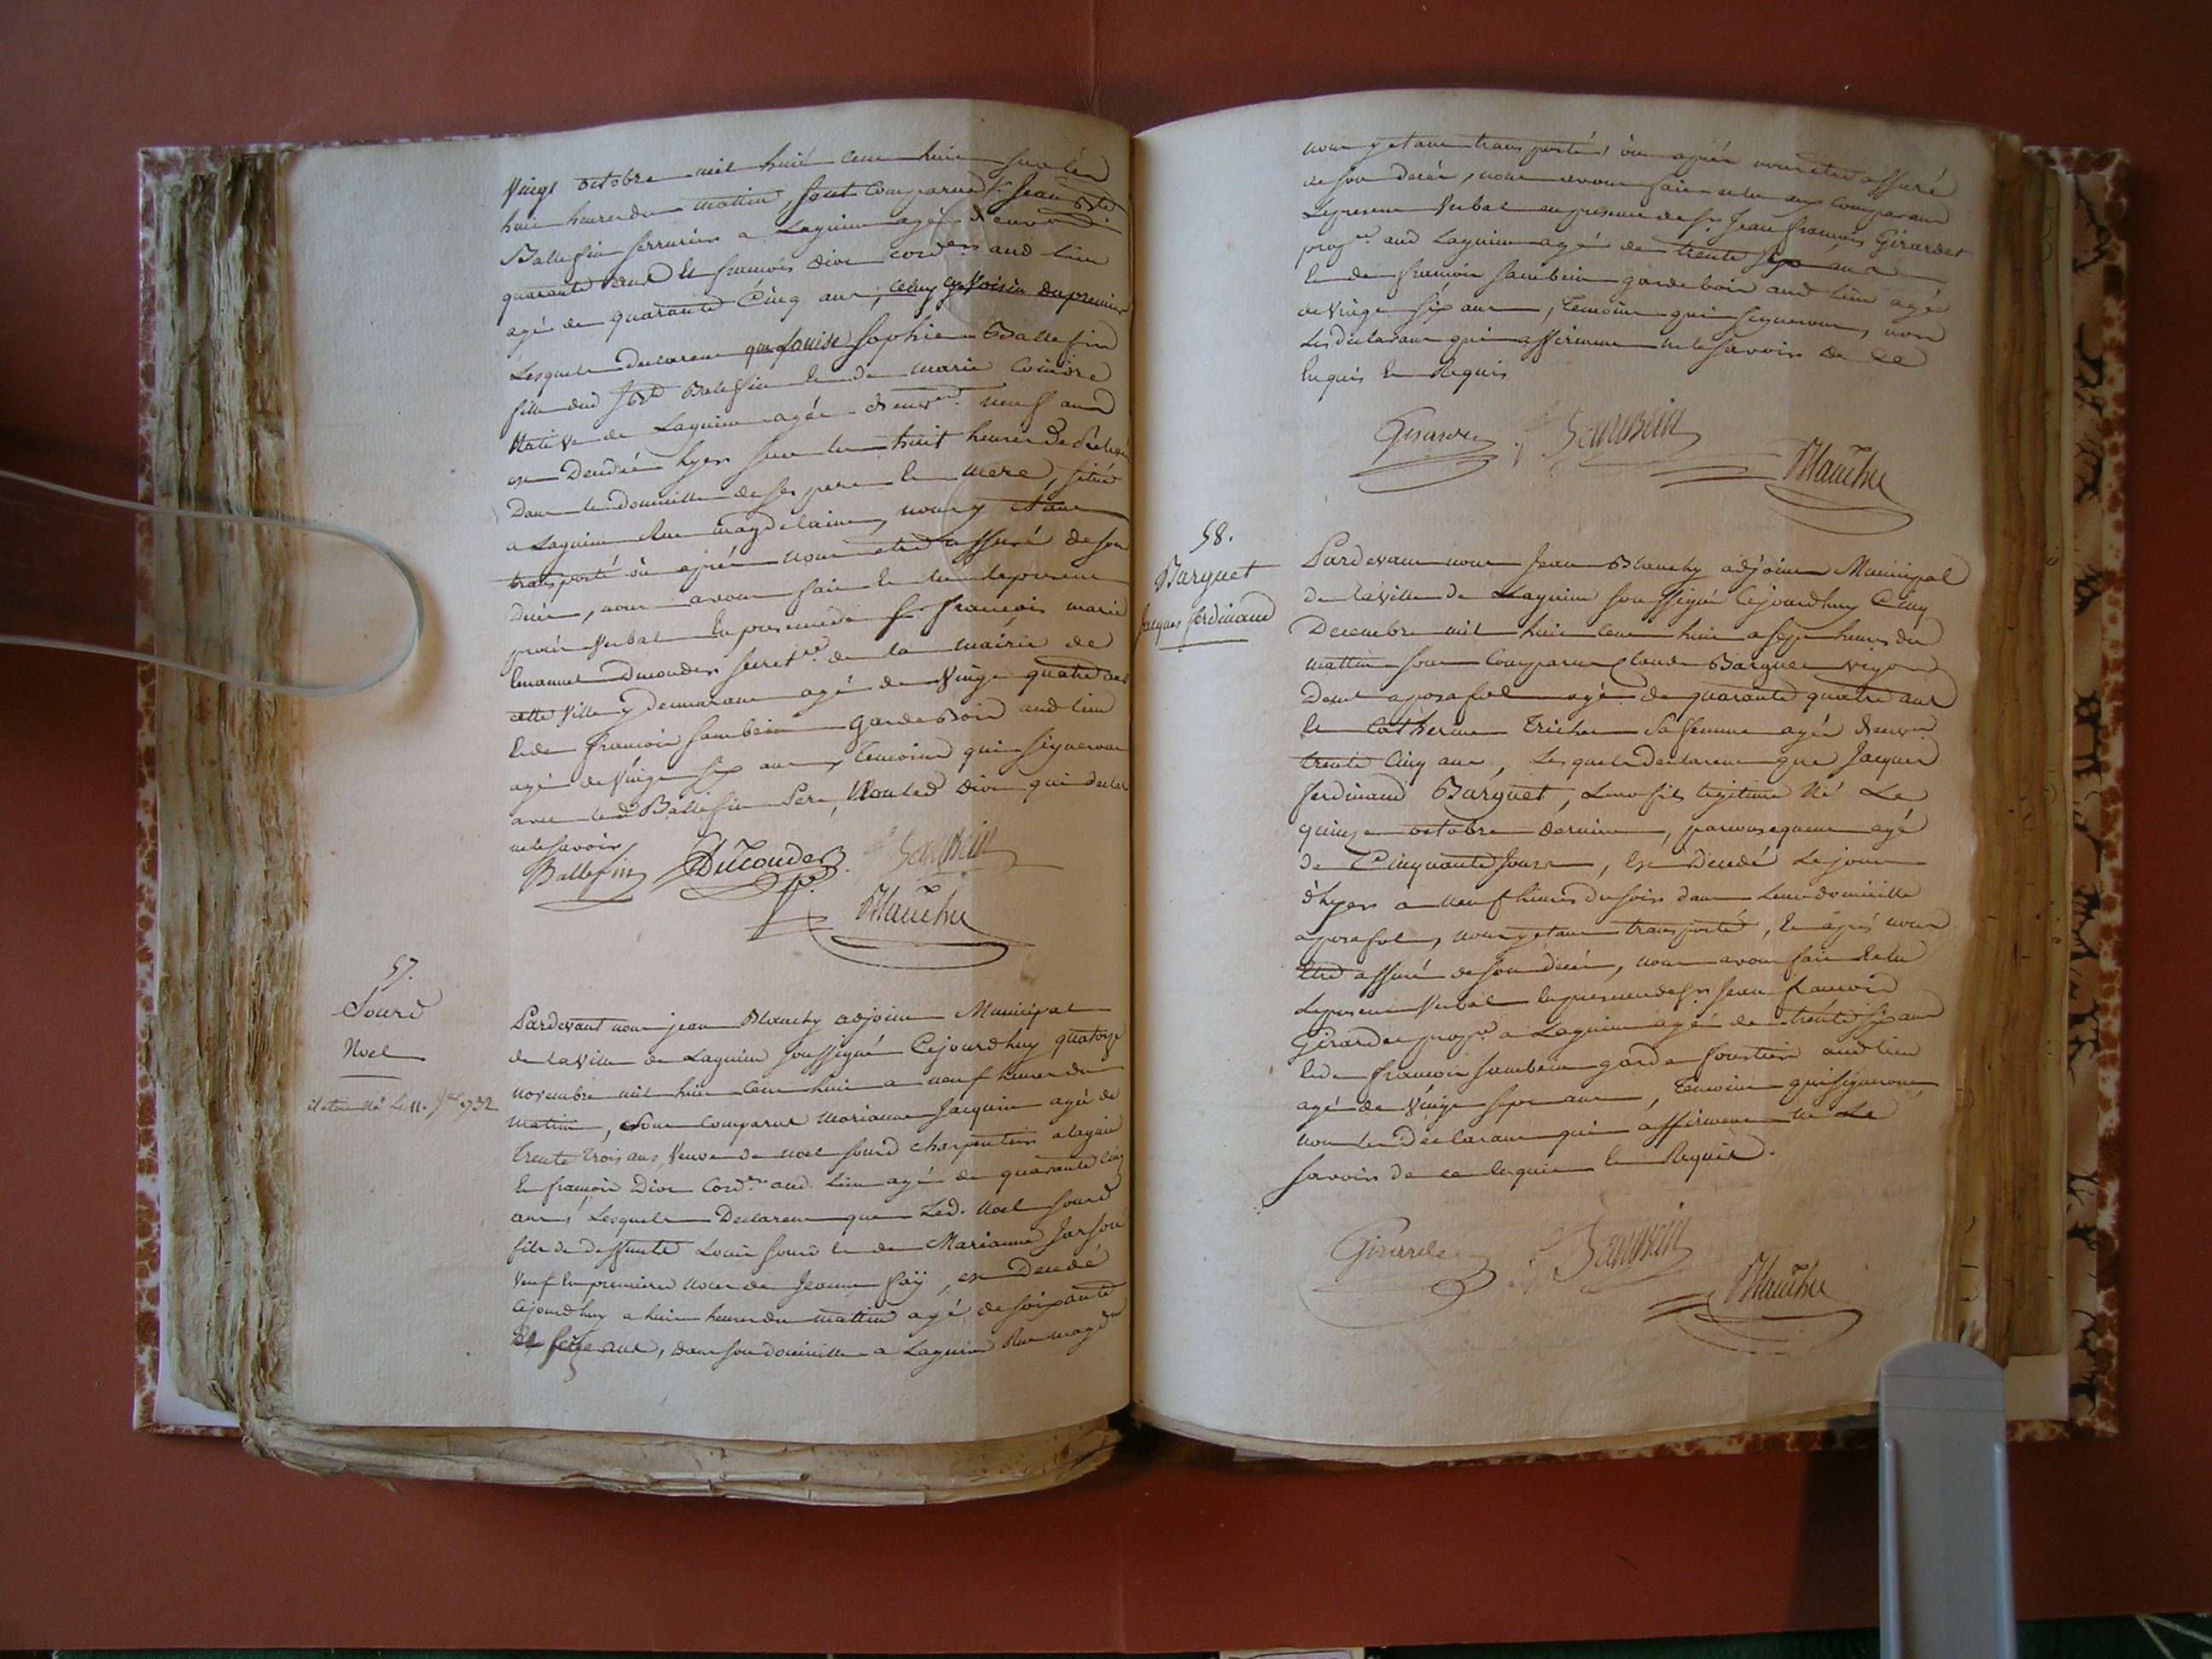 vingt octobre mil huit cent huit sur les
huit heures du mattin, sont comparus Sr Jean Bte
Ballefin serrurier a Lagnieu agé d'environ
quarante ans et françois Dive cordier aud lieu
agé de quarante Cinq ans, celuy cy voisin du premier
Lesquels declarent que Louise Sophie Ballefin
fille dud Jn Bte Ballefin et de Marie
Native de Lagnieu agée d'environ neuf ans
est Decédée hyer sur les huit heures de
Dans le domicille de ses pere et mere, situé
a Lagnieu Rue magdelaine, nous y etant
transporté où après nous etre assuré de son
decés, nous avons fait et lu le present
procés verbal en presence de Sr françois marie
emanuel Ducouder secretre de la mairie de
cette ville y demeurant agé de vingt quatre ans
et de françois Sambein garde Bois aud lieu
agé de vingt six ans, temoins qui signeront
avec led Ballefin Pere, Non led Dive qui declare
ne le savoir
Ballefin Ducouder Sambein
Blanchy
57.
Sourd
Noel
il etoit né Le 11. 1732
Pardevant nous jean Blanchy adjoint Municipal
de la ville de Lagnieu soussigné Cejourdhuy quatorze
novembre mil huit cent huit a neuf heures du
mattin, Sont comparus Marianne Jacquin agée de
trente trois ans, veuve de noel Sourd charpentier a lagnieu
et françois Dive Cordier aud. lieu agé de quarante cinq
ans, Lesquels Declarent que Led. Noel Sourd
fils de deffunts Louis Sourd et de Marianne
veuf en premieres noces de Jeanne faÿ, est Decedé
Cejourdhuy a huit heures du mattin agé de soixante
et seize ans, dans son domicille a Lagnieu Rue magdne
nous y etant transporté, où après nous etre assuré
de son decés, nous avons fait et lu aux comparans
Le present verbal en presence de Sr Jean françois Girardet
propre aud Lagnieu agé de trente six ans
et de françois Sambein garde bois aud lieu agé
de vingt six ans, temoins qui signeront, non
Les declarans qui affirment ne le savoir de ce
Enquis et Requis
Girardet Sambein
Blanchy
58.
Barquet
Jacques ferdinand
Pardevant nous Jean Blanchy adjoint Municipal
de la ville de Lagnieu soussigné Cejourdhuy Cinq
Decembre mil huit cent huit a sept heures du
mattin sont comparus Claude Barquet vigon
Demt a posafol agé de quarante quatre ans
et Catherine Trichon Sa femme agée d'environ
trente Cinq ans, Lesquels declarent que Jacques
ferdinand Barquet, Leur fils legitime Né Le
quinze octobre dernier, par consequent agé
de Cinquante Jours, est Decedé Le jour
d'hyer a neuf heures du soir dans Leur domicille
a posafol, nous y etant transporté, et après nous
etre assuré de son decés, nous avons fait et lu
Le present verbal en presence de Sr Jean françois
Girardet propre a Lagnieu agé de trente six ans
et de françois Sambein garde forestier aud lieu
agé de vingt sept ans, temoins qui signeront,
non les declarans qui affirment ne Le
savoir de ce enquis et Requis.
Girardet Sambein
Blanchy